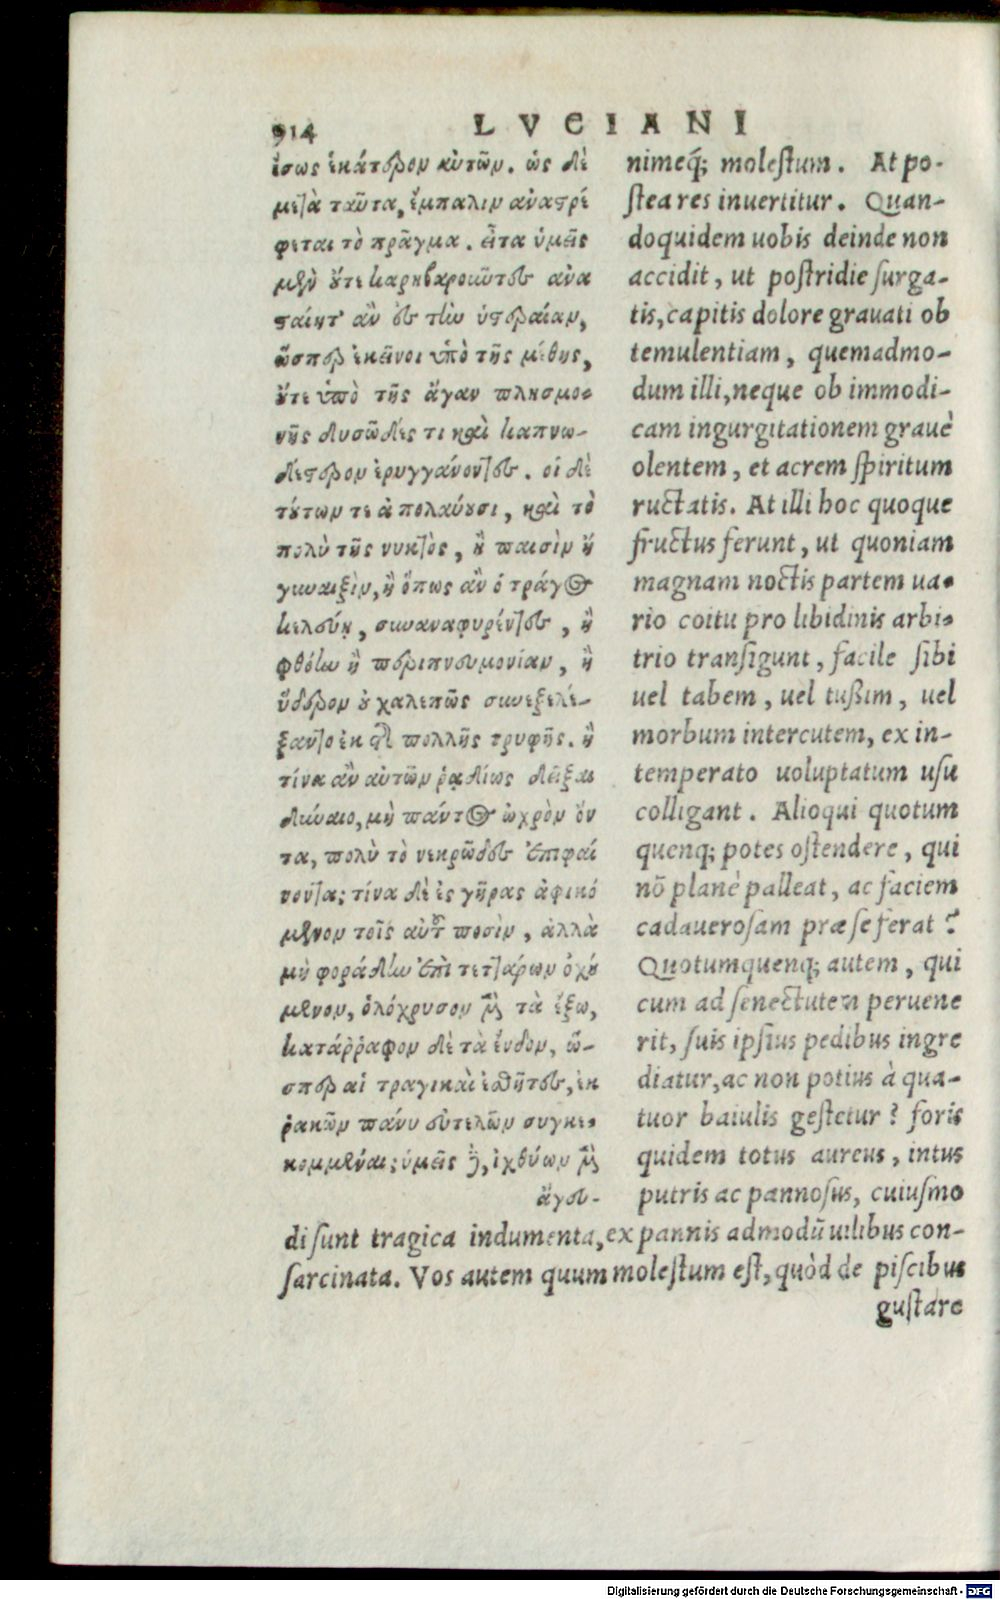 914 LVCIANI
ἴσως ἑκάτερον αὐτῶν. ὡς δὲ
μετὰ ταῦτα, ἔμπαλιν ἀναστρέ
φεται τὸ πρᾶγμα. εἶτα ὑμεῖς
μὲν οὔτε καρηβαροῦντες ἀνα
σταίητ' ἂν ἐς τὴν ὑστεραίαν,
ὥσπερ ἐκεῖνοι ὑπὸ τῆς μέθης,
οὔτε ὑπὸ τῆς ἄγαν πλησμο-
νῆς δυσῶδές τι καὶ καπνω-
δέστερον ἐρυγγάνοντες. οἱ δὲ
τούτων τε ἀπολαύουσι, καὶ τὸ
πολὺ τῆς νυκτὸς, ἢ παισὶν ἢ
γυναιξὶν, ἢ ὅπως ἂν ὁ τράγος
κελεύῃ, συναναφυρέντες, ἢ
φθόην ἢ περιπνευμονίαν, ἢ
ὕδερον οὐ χαλεπῶς συνεξελέ-
ξαντο ἐκ τῆς πολλῆς τρυφῆς. ἢ
τίνα ἂν αὐτῶν ῥᾳδίως δεῖξαι
δύναιο, μὴ πάντως ὠχρὸν ὄν
τα, πολὺ τὸ νεκρῶδες ἐπιφαί
νοντα; τίνα δὲ ἐς γῆρας ἀφικό
μενον τοῖς αὑτοῦ ποσὶν, ἀλλὰ
μὴ φοράδην ἐπὶ τεττάρων ὀχού
μενον, ὁλόχρυσον μὲν τὰ ἔξω,
κατάῤῥαφον δὲ τὰ ἔνδον, ὥ-
σπερ αἱ τραγικαὶ ἐσθῆτες, ἐκ
ῥακῶν πάνυ εὐτελῶν συγκε-
κομμέναι; ὑμεῖς δὲ, ἰχθύων μὲν
ἄγευ-
nimeq́; molestum. At po-
stea res inuertitur. Quan-
doquidem uobis deinde non
accidit, ut postridie surga-
tis, capitis dolore grauati ob
temulentiam, quemadmo-
dum illi, neque ob immodi-
cam ingurgitationem grauè
olentem, et acrem spiritum
ructatis. At illi hoc quoque
fructus ferunt, ut quoniam
magnam noctis partem ua-
rio coitu pro libidinis arbi-
trio transigunt, facile sibi
uel tabem, uel tußim, uel
morbum intercutem, ex in-
temperato uoluptatum usu
colligant. Alioqui quotum
quenq; potes ostendere, qui
nō planè palleat, ac faciem
cadauerosam præ se ferat?
Quotumquenq; autem, qui
cum ad senectutem peruene
rit, suis ipsius pedibus ingre
diatur, ac non potius à qua-
tuor baiulis gestetur? foris
quidem totus aureus, intus
putris ac pannosus, cuiusmo
di sunt tragica indumenta, ex pannis admodū uilibus con-
sarcinata. Vos autem quum molestum est, quòd de piscibus
gustare
Digitalisierung gefördert durch die Deutsche Forschungsgemeinschaft - DFG